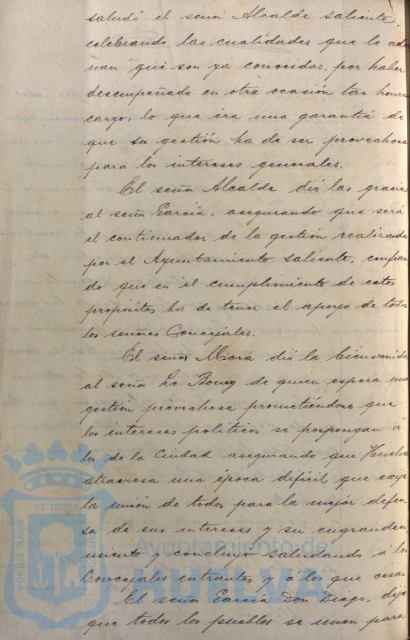 saludó el señor Alcalde saliente,
celebrando las cualidades que lo ador
nan que son ya conocidas, por haber
desempeñado en otra ocasión tan honroso
cargo, lo que era una garantía de
que su gestión ha de ser provechosa
para los intereses generales.
El señor Alcalde dió las gracias
al señor García, asegurando que será
el continuador de la gestión realizada
por el Ayuntamiento saliente, confian
do que en el cumplimiento de estos
propósitos ha de tener el apoyo de todos
los señores Concejales.
El señor Mora dió la bienvenida
al señor de quien espera una
gestión provechosa prometiéndose que
los intereses políticos se pospongan á
los de la Ciudad asegurando que Huelva
atraviesa una época difícil que exije
la unión de todos para la mejor defen
sa de sus intereses y su engrandeci
miento y concluye saludando á los
Concejales entrantes y á los que cesan
El señor García Don Diego, dijo
que todos los pueblos se unen para
PORTUS MARIS
ET TERRÆ
Ayuntamiento de
HUELVA